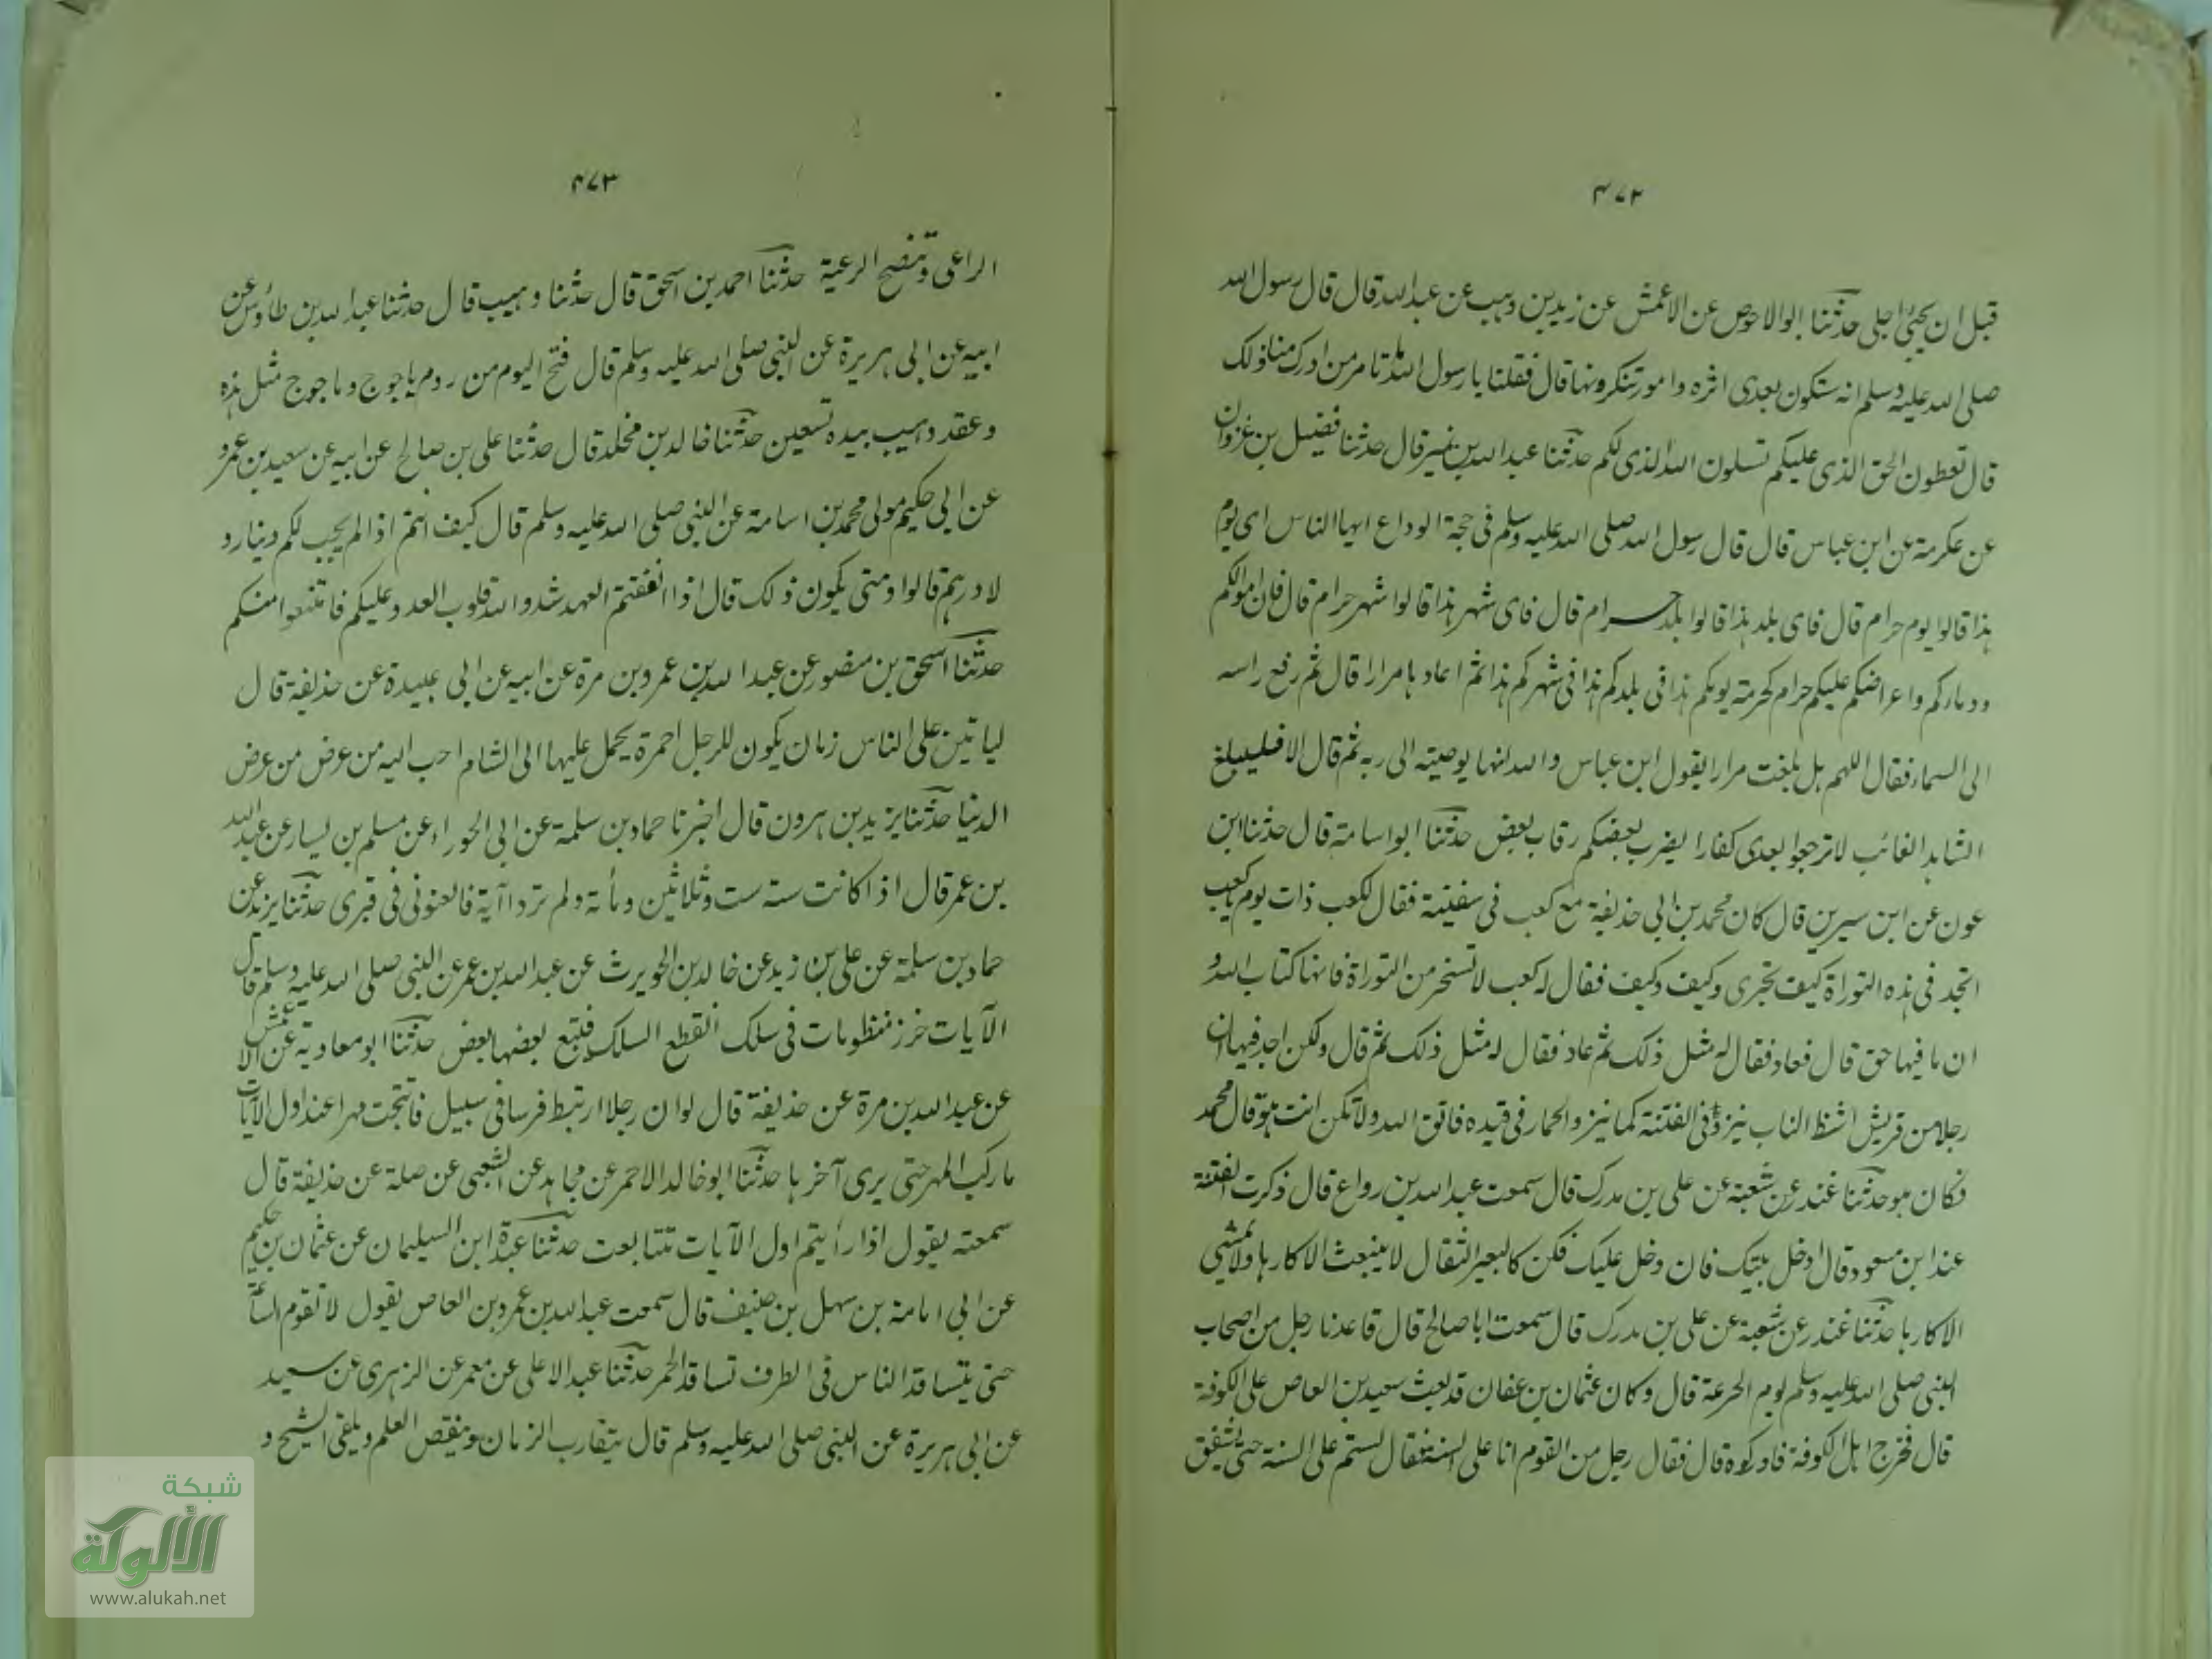 ٤٧٢
قبل ان يجئ اجلى حدثنا ابو الاحوص عن الاعمش عن زيد بن وهب عن عبد الله قال قال رسول الله
صلى الله عليه وسلم انه ستكون بعدى اثره وامور تنكرونها قال فقلنا يا رسول الله ما تامر من ادرك منا ذلك
قال تعطون الحق الذى عليكم تسلون الله الذى لكم حدثنا عبد الله بن نمير قال حدثنا فضيل بن غزوان
عن عكرمة عن ابن عباس قال قال رسول الله صلى الله عليه وسلم فى حجة الوداع ايها الناس اى يوم
هذا قالوا يوم حرام قال فاى بلد هذا قالوا بلد حرام قال فاى شهر هذا قالوا شهر حرام قال فان اموالكم
ودماركم واعراضكم عليكم حرام كحرمة يومكم هذا فى بلدكم هذا فى شهركم هذا ثم اعادها مرارا قال ثم رفع راسه
الى السماء فقال اللهم هل بلغت مرارا يقول ابن عباس والله انها يوصيته الى ربه ثم قال الا فليبلغ
الشاهد الغائب لا ترجعوا بعدى كفارا يضرب بعضكم رقاب بعض حدثنا ابو اسامة قال حدثنا ابن
عون عن ابن سيرين قال كان محمد بن ابى حذيفة مع كعب فى سفينة فقال لكعب ذات يوم يا كعب
اتجد فى هذه التوراة كيف تجرى وكيف وكيف فقال له كعب لا تسخر من التوراة فانها كتاب الله و
ان ما فيها حق قال فعاد فقال له مثل ذلك ثم عاد فقال له مثل ذلك ثم قال ولكن اجد فيها ان
رجلا من قريش اشظ الناب ينزو فى الفتنة كما ينزو الحمار فى قيده فاتق الله ولا تكن انت هو قال محمد
فكان هو حدثنا غندر عن شعبة عن على بن مدرك قال سمعت عبد الله بن رواع قال ذكرت الفتنة
عند ابن مسعود قال ادخل بيتك فان دخل عليك فكن كالبعير الثقال لا ينبعث الا كارها ولا يمشي
الا كارها حدثنا غندر عن شعبة عن على بن مدرك قال سمعت ابا صالح قال قاعدنا رجل من اصحاب
النبى صلى الله عليه وسلم يوم الجرعة قال وكان عثمان بن عفان قد بعث سعيد بن العاص على الكوفة
قال فخرج اهل الكوفة فادركوه قال فقال رجل من القوم انا على السنة فقال لستم على السنة حتى يشفق
٤٧٣
الراعى وتنصح الرعية حدثنا احمد بن اسحق قال حدثنا وهيب قال حدثنا عبد الله بن طاؤس عن
ابيه عن ابى هريرة عن النبى صلى الله عليه وسلم قال فتح اليوم من ردم ياجوج وماجوج مثل هذه
وعقد وهيب بيده تسعين حدثنا خالد بن مخلد قال حدثنا على بن صالح عن ابيه عن سعيد بن عمرو
عن ابى حكيم مولى محمد بن اسامة عن النبى صلى الله عليه وسلم قال كيف انتم اذا لم يجب لكم دينار و
لا درهم قالوا ومتى يكون ذلك قال اذا انقضتم العهد شدد الله قلوب العدو عليكم فامتنعوا منكم
حدثنا اسحق بن منصور عن عبد الله بن عمرو بن مرة عن ابيه عن ابى عبيدة عن حذيفة قال
لياتين على الناس زمان يكون للرجل احمرة يحمل عليها الى الشام احب اليه من عرض من عرض
الدنيا حدثنا يزيد بن هرون قال اخبرنا حماد بن سلمة عن ابى الحوراء عن مسلم بن يسار عن عبد الله
بن عمر قال اذا كانت سنة ست وثلاثين ومأة ولم تردا آية فالعنونى فى قبرى حدثنا يزيد عن
حماد بن سلمة عن على بن زيد عن خالد بن الحويرث عن عبد الله بن عمر عن النبى صلى الله عليه وسلم قال
الآيات خرز منظومات فى سلك انقطع السلك فيتبع بعضها بعض حدثنا ابو معاوية عن الاعمش
عن عبد الله بن مرة عن حذيفة قال لو ان رجلا ارتبط فرسا فى سبيل فانتجت مهرا عند اول الآيات
ما ركب المهر حتى يرى آخرها حدثنا ابو خالد الاحمر عن مجاهد عن الشعبى عن صلة عن حذيفة قال
سمعته يقول اذا رأيتم اول الآيات تتابعت حدثنا عبدة ابن السليمان عن عثمان بن حكيم
عن ابى امامة بن سهل بن حنيف قال سمعت عبد الله بن عمرو بن العاص يقول لا تقوم الساعة
حتى يتسافد الناس فى الطرف تسافد الحمر حدثنا عبد الاعلى عن معمر عن الزهرى عن سعيد
عن ابى هريرة عن النبى صلى الله عليه وسلم قال يتقارب الزمان وينقص العلم ويلقى الشح و
شبكة
الألوكة
www.alukah.net